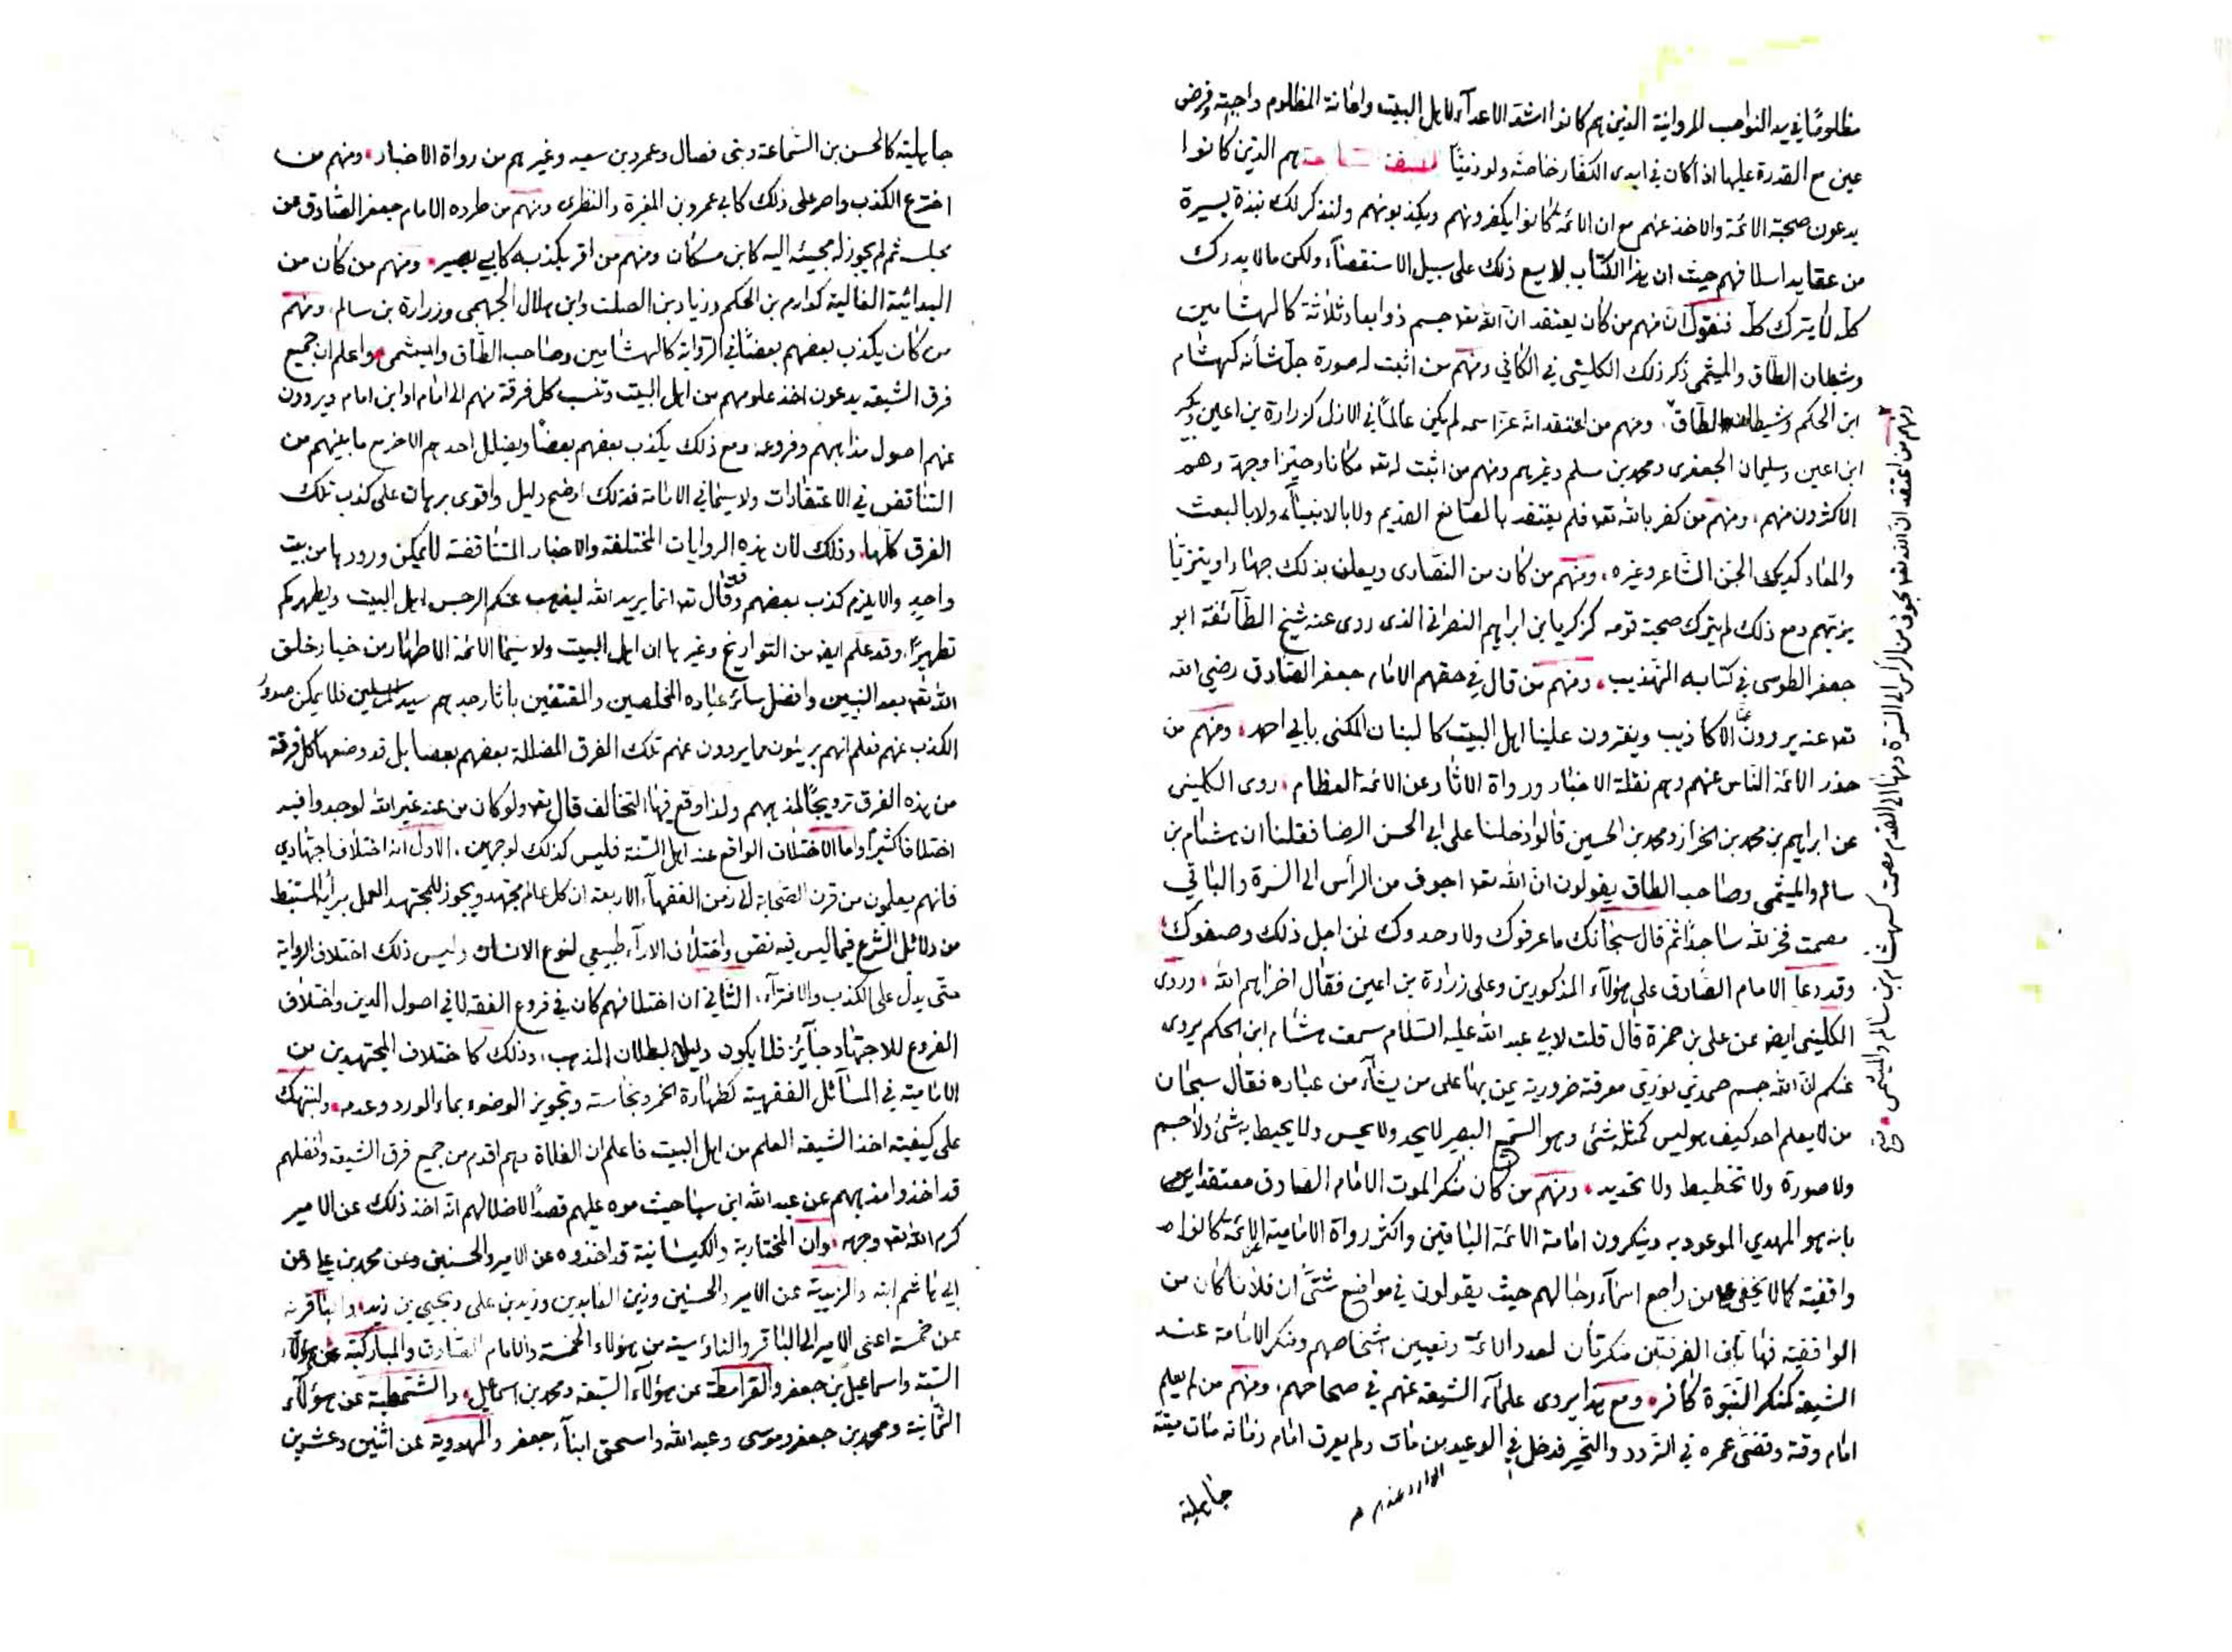 مظلومًا في يد النواصب المروانية الذين هم كانوا اشد الاعدآء لاهل البيت واعانة المظلوم واجبة وفرض
عين مع القدرة عليها اذا كان في ايدى الكفار خاصّة ولو ذميًّا هم الذين كانوا
يدعون صحبة الائمة والاخذ عنهم مع ان الائمة كانوا يكفرونهم ويكذبونهم ولنذكر لك نبذة يسيرة
من عقايد اسلافهم حيث ان هذا الكتاب لا يسع ذلك على سبيل الاستقصآء ولكن ما لا يدرك
كله لا يترك كله فنقول ان منهم من كان يعتقد ان الله تعا جسم ذو ابعاد ثلاثة كالهشامين
وشيطان الطاق والميثمى ذكر ذلك الكلينى في الكافي ومنهم من اثبت له صورة جل شأنه كهشام
ابن الحكم وشيطان الطاق ومنهم من اعتقد انه عز اسمه لم يكن عالمًا في الازل كزرارة بن اعين وبكير
ابن اعين وسليمان الجعفرى ومحمد بن مسلم وغيرهم ومنهم من اثبت له تعا مكانا وحيزا وجهة وهم
الاكثرون منهم ومنهم من كفر بالله تعا فلم يعتقد بالصانع القديم ولا بالانبيآء ولا بالبعث
والمعاد كديك الجن الشاعر وغيره ومنهم من كان من النصارى ويعلن بذلك جهارا ويتزيّا
بزيهم ومع ذلك لم يترك صحبة قومه كزكريا بن ابراهيم النصرانى الذى روى عنه شيخ الطآئفة ابو
جعفر الطوسى في كتابه التهذيب ومنهم من قال في حقهم الامام جعفر الصادق رضي الله
تعا عنه يروون عنا الاكاذيب ويفترون علينا اهل البيت كالبنان المكنى بابي احمد ومنهم من
حذر الائمة الناس عنهم وهم نقلة الاخبار ورواة الاثار عن الائمة العظام روى الكلينى
عن ابراهيم بن محمد بن الخراز ومحمد بن الحسين قالوا دخلنا على ابي الحسن الرضا فقلنا ان هشام بن
سالم والميثمى وصاحب الطاق يقولون ان الله تعا اجوف من الرأس الى السرة والباقي
مصمت فخر لله ساجدا ثم قال سبحانك ما عرفوك ولا وحدوك فمن اجل ذلك وصفوك
وقد دعا الامام الصادق على هؤلآء المذكورين وعلى زرارة بن اعين فقال اخزاهم الله وروى
الكلينى ايضا عن على بن حمزة قال قلت لابي عبد الله عليه السلام سمعت هشام ابن الحكم يروى
عنكم ان الله جسم صمدي نورى معرفته ضرورية يمن بها على من يشآء من عباده فقال سبحان
من لا يعلم احد كيف هو ليس كمثله شئ وهو السميع البصير لا يحد ولا يحس ولا يحيط به شئ ولا جسم
ولا صورة ولا تخطيط ولا تحديد ومنهم من كان منكر الموت الامام الصادق معتقدا
بانه هو المهدي الموعود به وينكرون امامة الائمة الباقين واكثر رواة الامامية كانوا
واقفية كما لا يخفى على من راجع اسمآء رجالهم حيث يقولون في مواضع شتى ان فلانا كان من
الواقفية فهاتان الفرقتين منكرتان لعدد الائمة وتعيين اشخاصهم ومنكر الامامة عند
الشيعة كمنكر النبوة كافر ومع هذا يروى علمآء الشيعة عنهم في صحاحهم ومنهم من لم يعلم
امام وقته وقضى عمره في التردد والتحير فدخل في الوعيد من مات ولم يعرف امام زمانه مات ميتة
جاهلية
ومنهم من اعتقد ان الله تعا مجوف من الرأس الى السرة ومنها الى القدم مصمت كهشام بن سالم والميثمى
جاهلية كالحسن بن السماعة وبنى فضال وعمرو بن سعيد وغيرهم من رواة الاخبار ومنهم من
اخترع الكذب واصر على ذلك كابي عمرو بن المغرة والنظرى ومنهم من طرده الامام جعفر الصادق عن
مجلسه ثم لم يجوز له مجيئه اليه كابن مسكان ومنهم من اقر بكذبه كابي بصير ومنهم من كان من
البدائية الغالية كدارم بن الحكم وزياد بن الصلت وابن هلال الجهمى وزرارة بن سالم ومنهم
من كان يكذب بعضهم بعضا في الرواية كالهشامين وصاحب الطاق والميثمى واعلم ان جميع
فرق الشيعة يدعون اخذ علومهم من اهل البيت وتنسب كل فرقة منهم الى امام او ابن امام ويروون
عنهم اصول مذاهبهم وفروعه ومع ذلك يكذب بعضهم بعضا ويضلل احدهم الاخر مع ما بينهم من
التناقض في الاعتقادات ولا سيما في الامامة فذلك اوضح دليل واقوى برهان على كذب تلك
الفرق كلها وذلك لان هذه الروايات المختلفة والاخبار المتناقضة لا يمكن ورودها من بيت
واحد والا يلزم كذب بعضهم وقد قال تعا انما يريد الله ليذهب عنكم الرجس اهل البيت ويطهركم
تطهيرًا وقد علم ايضا من التواريخ وغيرها ان اهل البيت ولا سيما الائمة الاطهار من خيار خلق
الله تعا بعد النبيين وافضل سائر عباده المخلصين والمقتفين باثار جدهم سيد المرسلين فلا يمكن صدور
الكذب عنهم فعلم انهم بريئون مما يروون عنهم تلك الفرق المضللة بعضهم بعضا بل قد وضعها كل فرقة
من هذه الفرق ترويجًا لمذهبهم ولذا وقع فيها التخالف قال تعا ولو كان من عند غير الله لوجدوا فيه
اختلافا كثيرًا واما الاختلاف الواقع عند اهل السنة فليس كذلك لوجهين الاول انه اختلاف اجتهادي
فانهم يعلمون من قرن الصحابة الى زمن الفقهآء الاربعة ان كل عالم مجتهد ويجوز للمجتهد العمل برأيه المستنبط
من دلائل الشرع فيما ليس فيه نص واختلاف الارآء طبيعي لنوع الانسان وليس ذلك اختلاف الرواية
حتى يدل على الكذب والافترآء الثاني ان اختلافهم كان في فروع الفقه لا في اصول الدين واختلاف
الفروع للاجتهاد جآئز فلا يكون دليل بطلان المذهب وذلك كاختلاف المجتهدين من
الامامية في المسآئل الفقهية كطهارة الخمر ونجاسته وتجويز الوضوء بماء الورد وعدمه ولننبهك
على كيفية اخذ الشيعة العلم من اهل البيت فاعلم ان الغلاة وهم اقدم من جميع فرق الشيعة وافضلهم
قد اخذوا مذهبهم عن عبد الله ابن سبا حيث موه عليهم قصدًا لاضلالهم انه اخذ ذلك عن الامير
كرم الله تعا وجهه وان المختارية والكيسانية قد اخذوه عن الامير والحسنين وعن محمد بن على وعن
ابي هاشم ابنه والزيدية عن الامير والحسنين وزين العابدين وزيد بن على ويحيى بن زيد والباقرية
عن خمسة اعنى الامير الى الباقر والناؤسية من هؤلاء الخمسة والامام الصادق والمباركية عن هؤلآء
الستة واسماعيل بن جعفر والقرامطة عن هؤلآء السبعة ومحمد بن اسماعيل والشمطية عن هؤلآء
الثمانية ومحمد بن جعفر وموسى وعبد الله واسحق ابنآء جعفر والمهدوية عن اثنين وعشرين